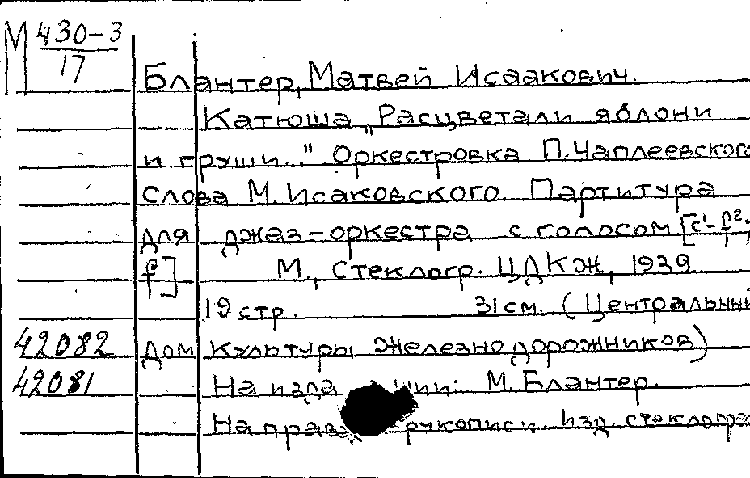 М 430-3
17
Блантер, Матвей Исаакович.
Катюша „Расцветали яблони
и груши.." Оркестровка П. Чаплеевского
слова М. Исаковского Партитура
для джаз-оркестра с голосом [c'-f²;
f²] М., Стеклогр. ЦДКЖ, 1939
19 стр. 31 см. (Центральный
42082 Дом культуры железнодорожников)
42081 На изда нии: М. Блантер.
На прав рукописи. Изд. стеклогра